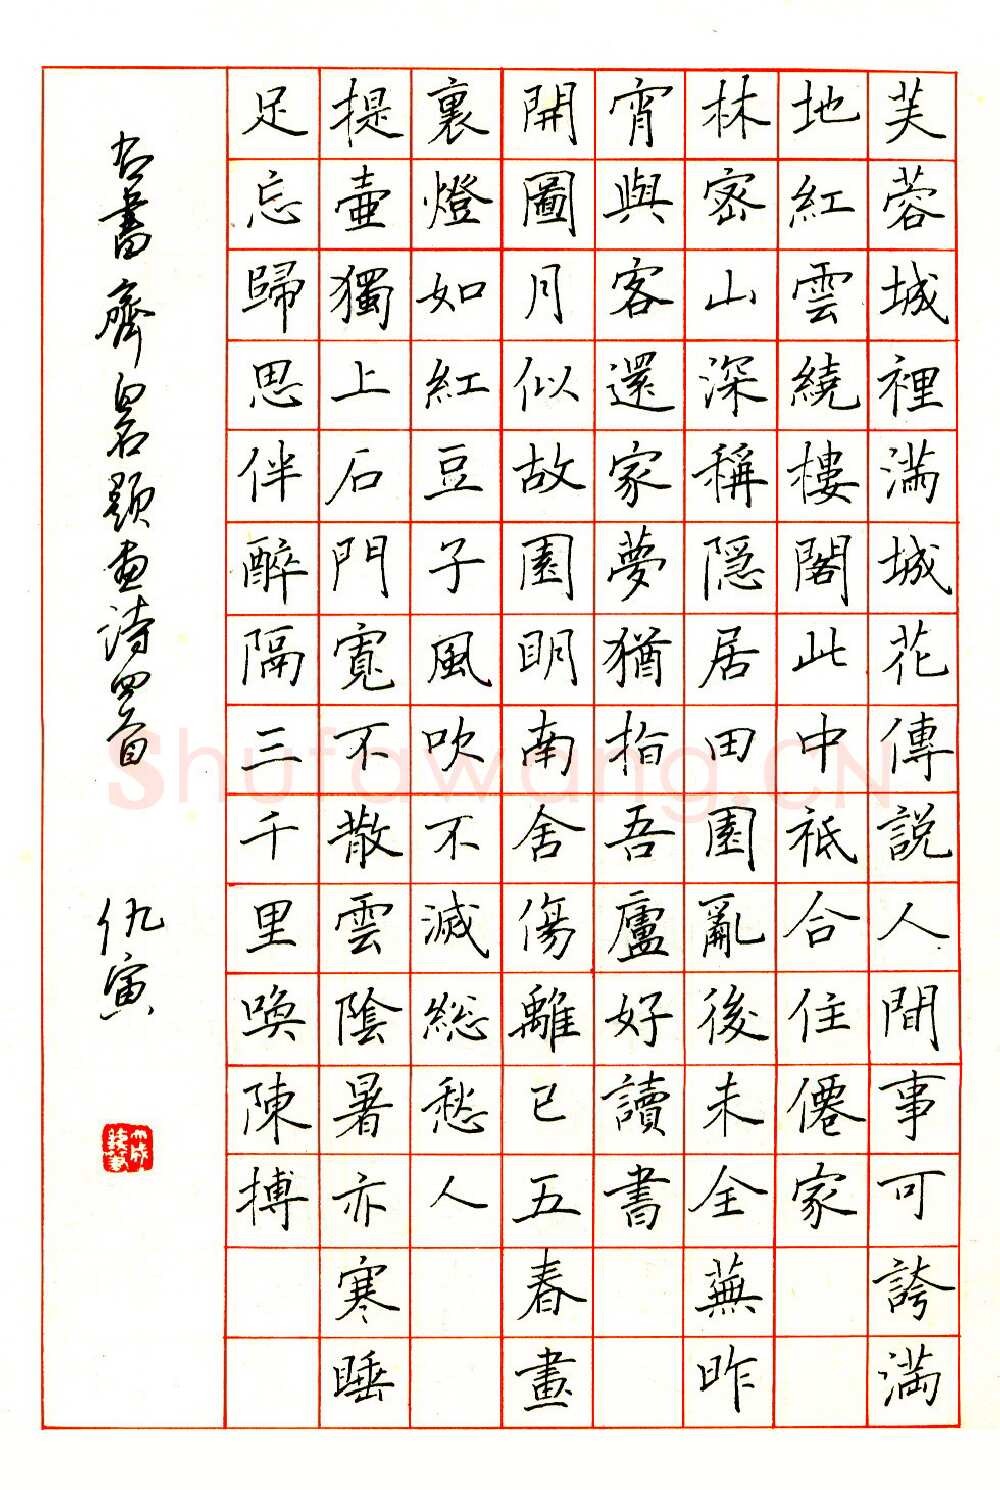 芙蓉城裡滿城花傳說人間事可誇滿
地紅雲繞樓閣此中祗合住僊家
林密山深稱隱居田園亂後未全蕪昨
宵與客還家夢猶指吾廬好讀書
開圖月似故園明南舍傷離已五春畫
裏燈如紅豆子風吹不滅總愁人
提壺獨上石門寬不散雲陰暑亦寒睡
足忘歸思伴醉隔三千里喚陳摶
右書齊白石題畫詩四首
仇寅
Shufawang.CN